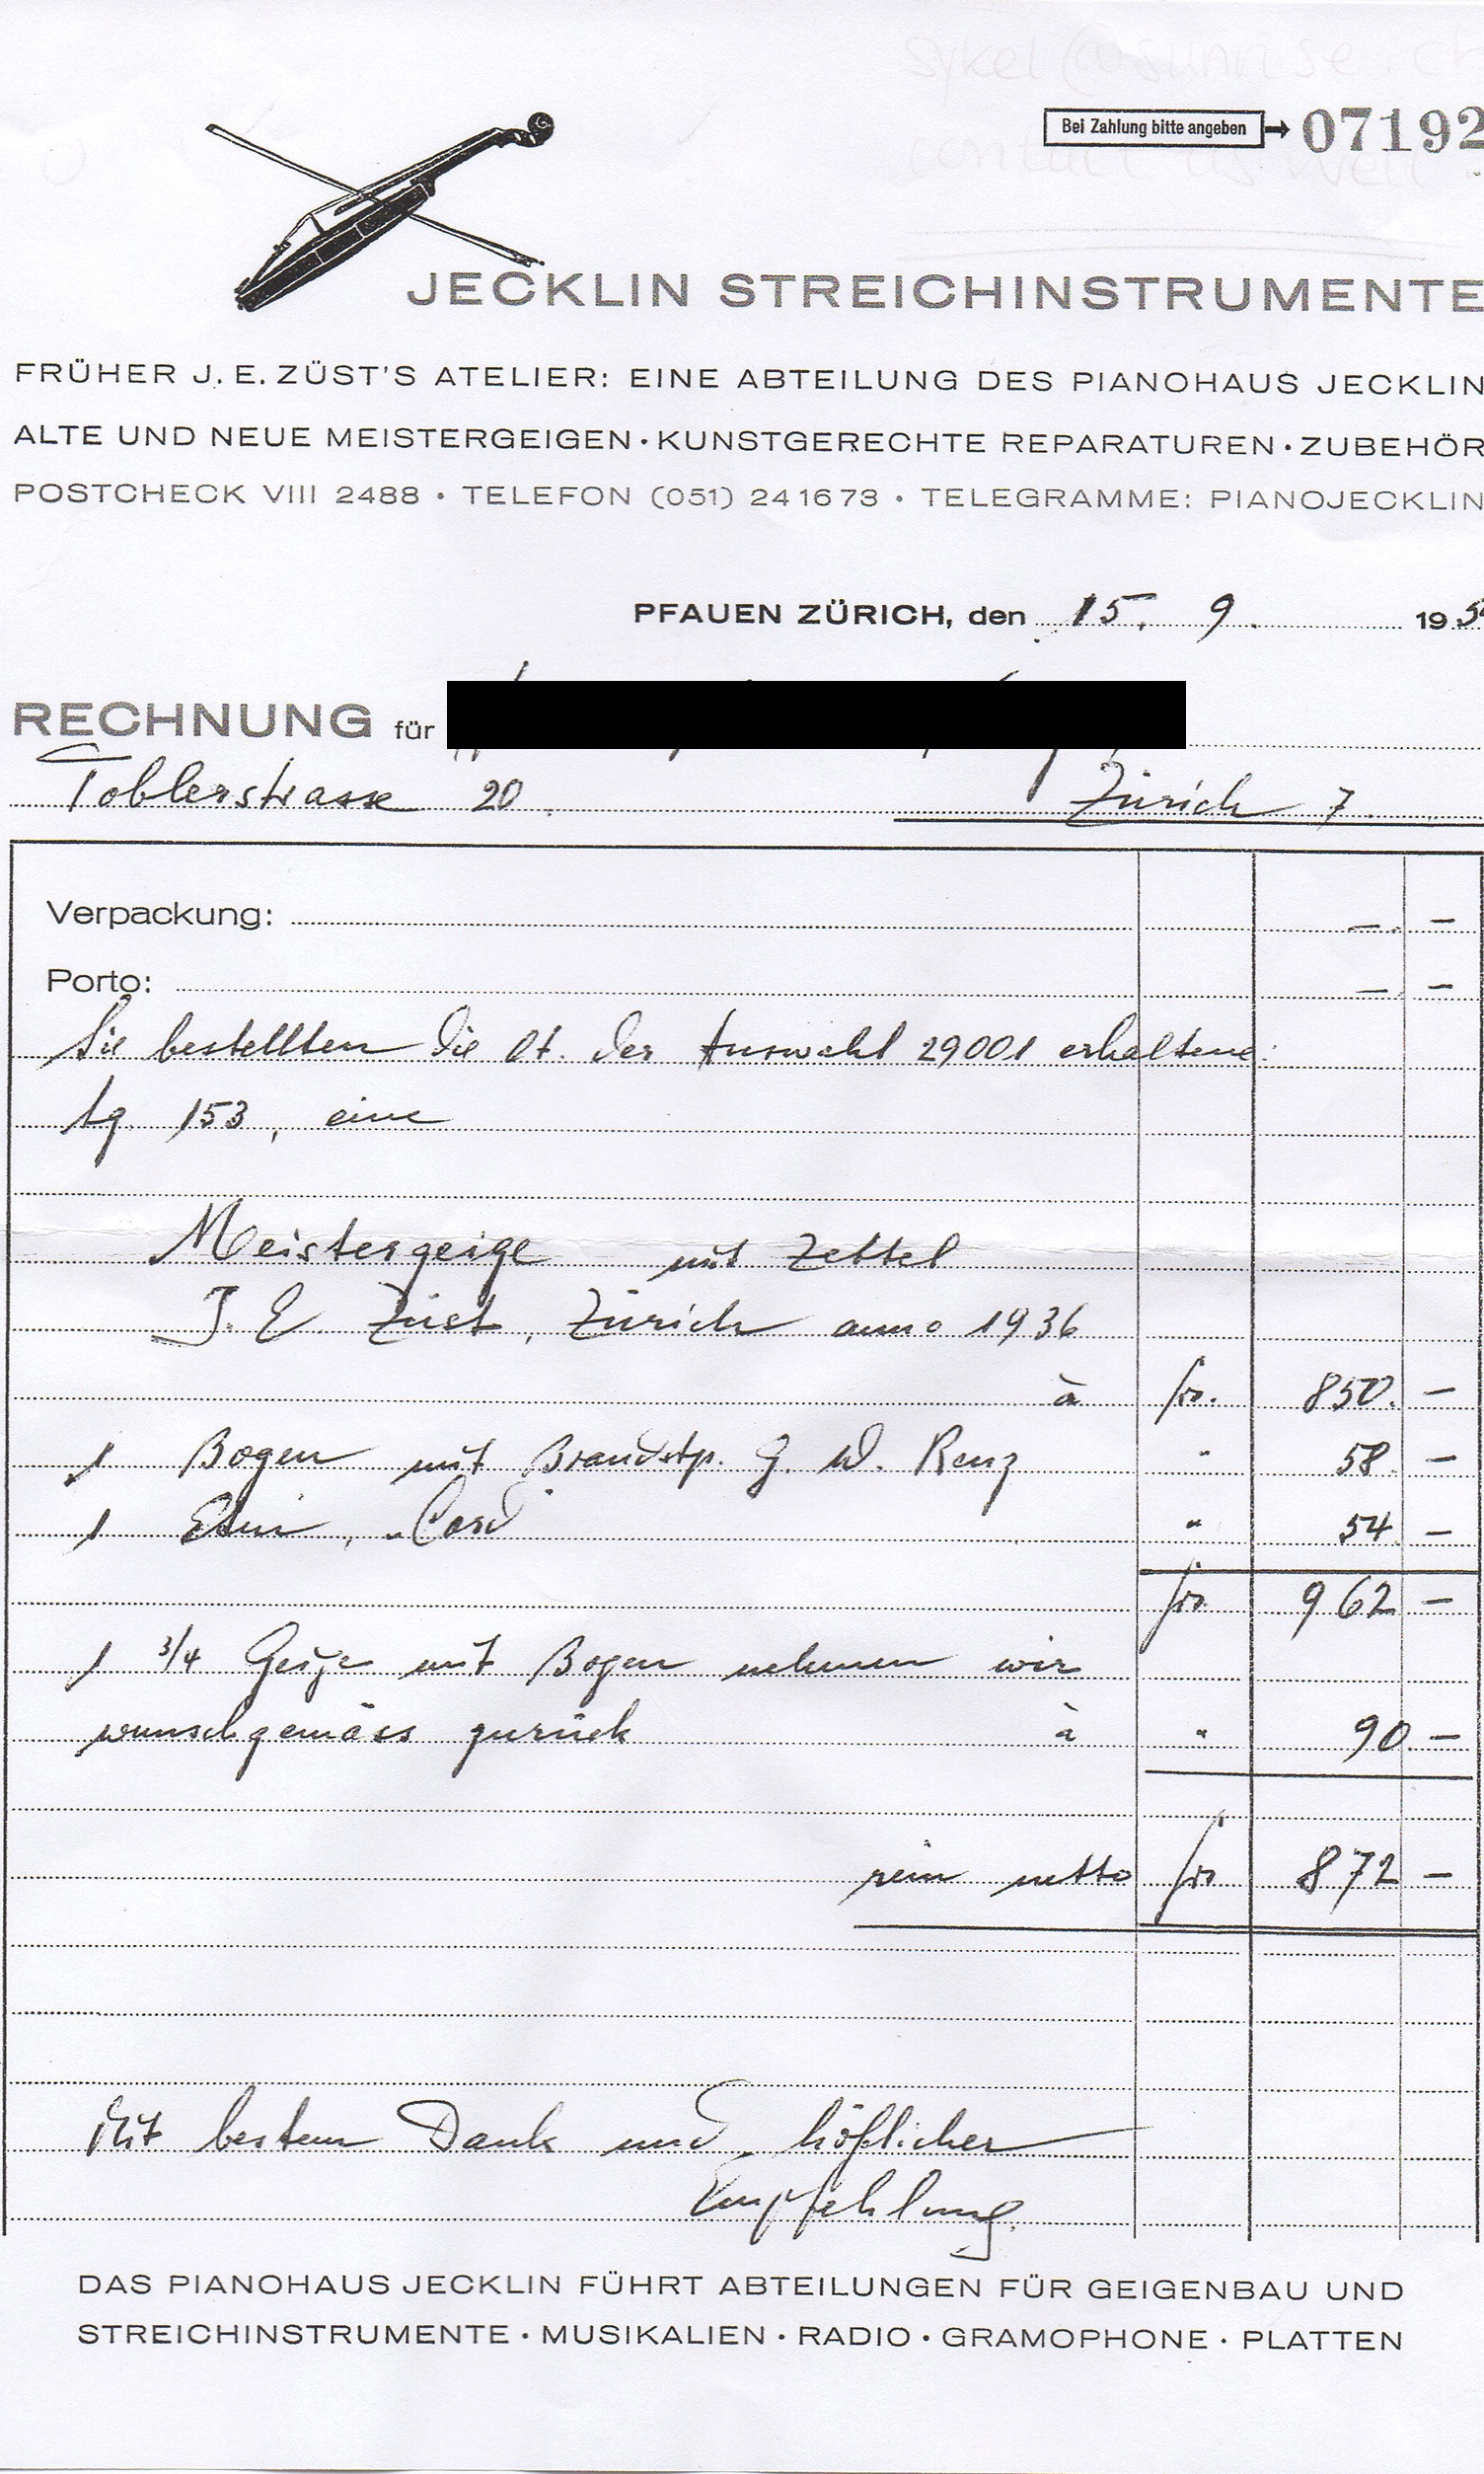 Bei Zahlung bitte angeben → 07192
JECKLIN STREICHINSTRUMENTE
FRÜHER J. E. ZÜST'S ATELIER: EINE ABTEILUNG DES PIANOHAUS JECKLIN
ALTE UND NEUE MEISTERGEIGEN · KUNSTGERECHTE REPARATUREN · ZUBEHÖR
POSTCHECK VIII 2488 · TELEFON (051) 24 16 73 · TELEGRAMME: PIANOJECKLIN
PFAUEN ZÜRICH, den 15. 9. 195
RECHNUNG für
Toblerstrasse 20 Zürich 7.
Verpackung: —. —
Porto: —. —
Sie bestellten die lt. der Auswahl 29001 erhaltene
Lg. 153, eine
Meistergeige mit Zettel
J. E. Züst, Zürich anno 1936
à fr. 850. —
1 Bogen mit Brandstp. G. W. Renz " 58. —
1 Etui, " 54 —
fr. 962 —
1 3/4 Geige mit Bogen nehmen wir
wunschgemäss zurück à " 90. —
rein netto fr 872 —
Mit bestem Dank und höflicher
Empfehlung.
DAS PIANOHAUS JECKLIN FÜHRT ABTEILUNGEN FÜR GEIGENBAU UND
STREICHINSTRUMENTE · MUSIKALIEN · RADIO · GRAMOPHONE · PLATTEN